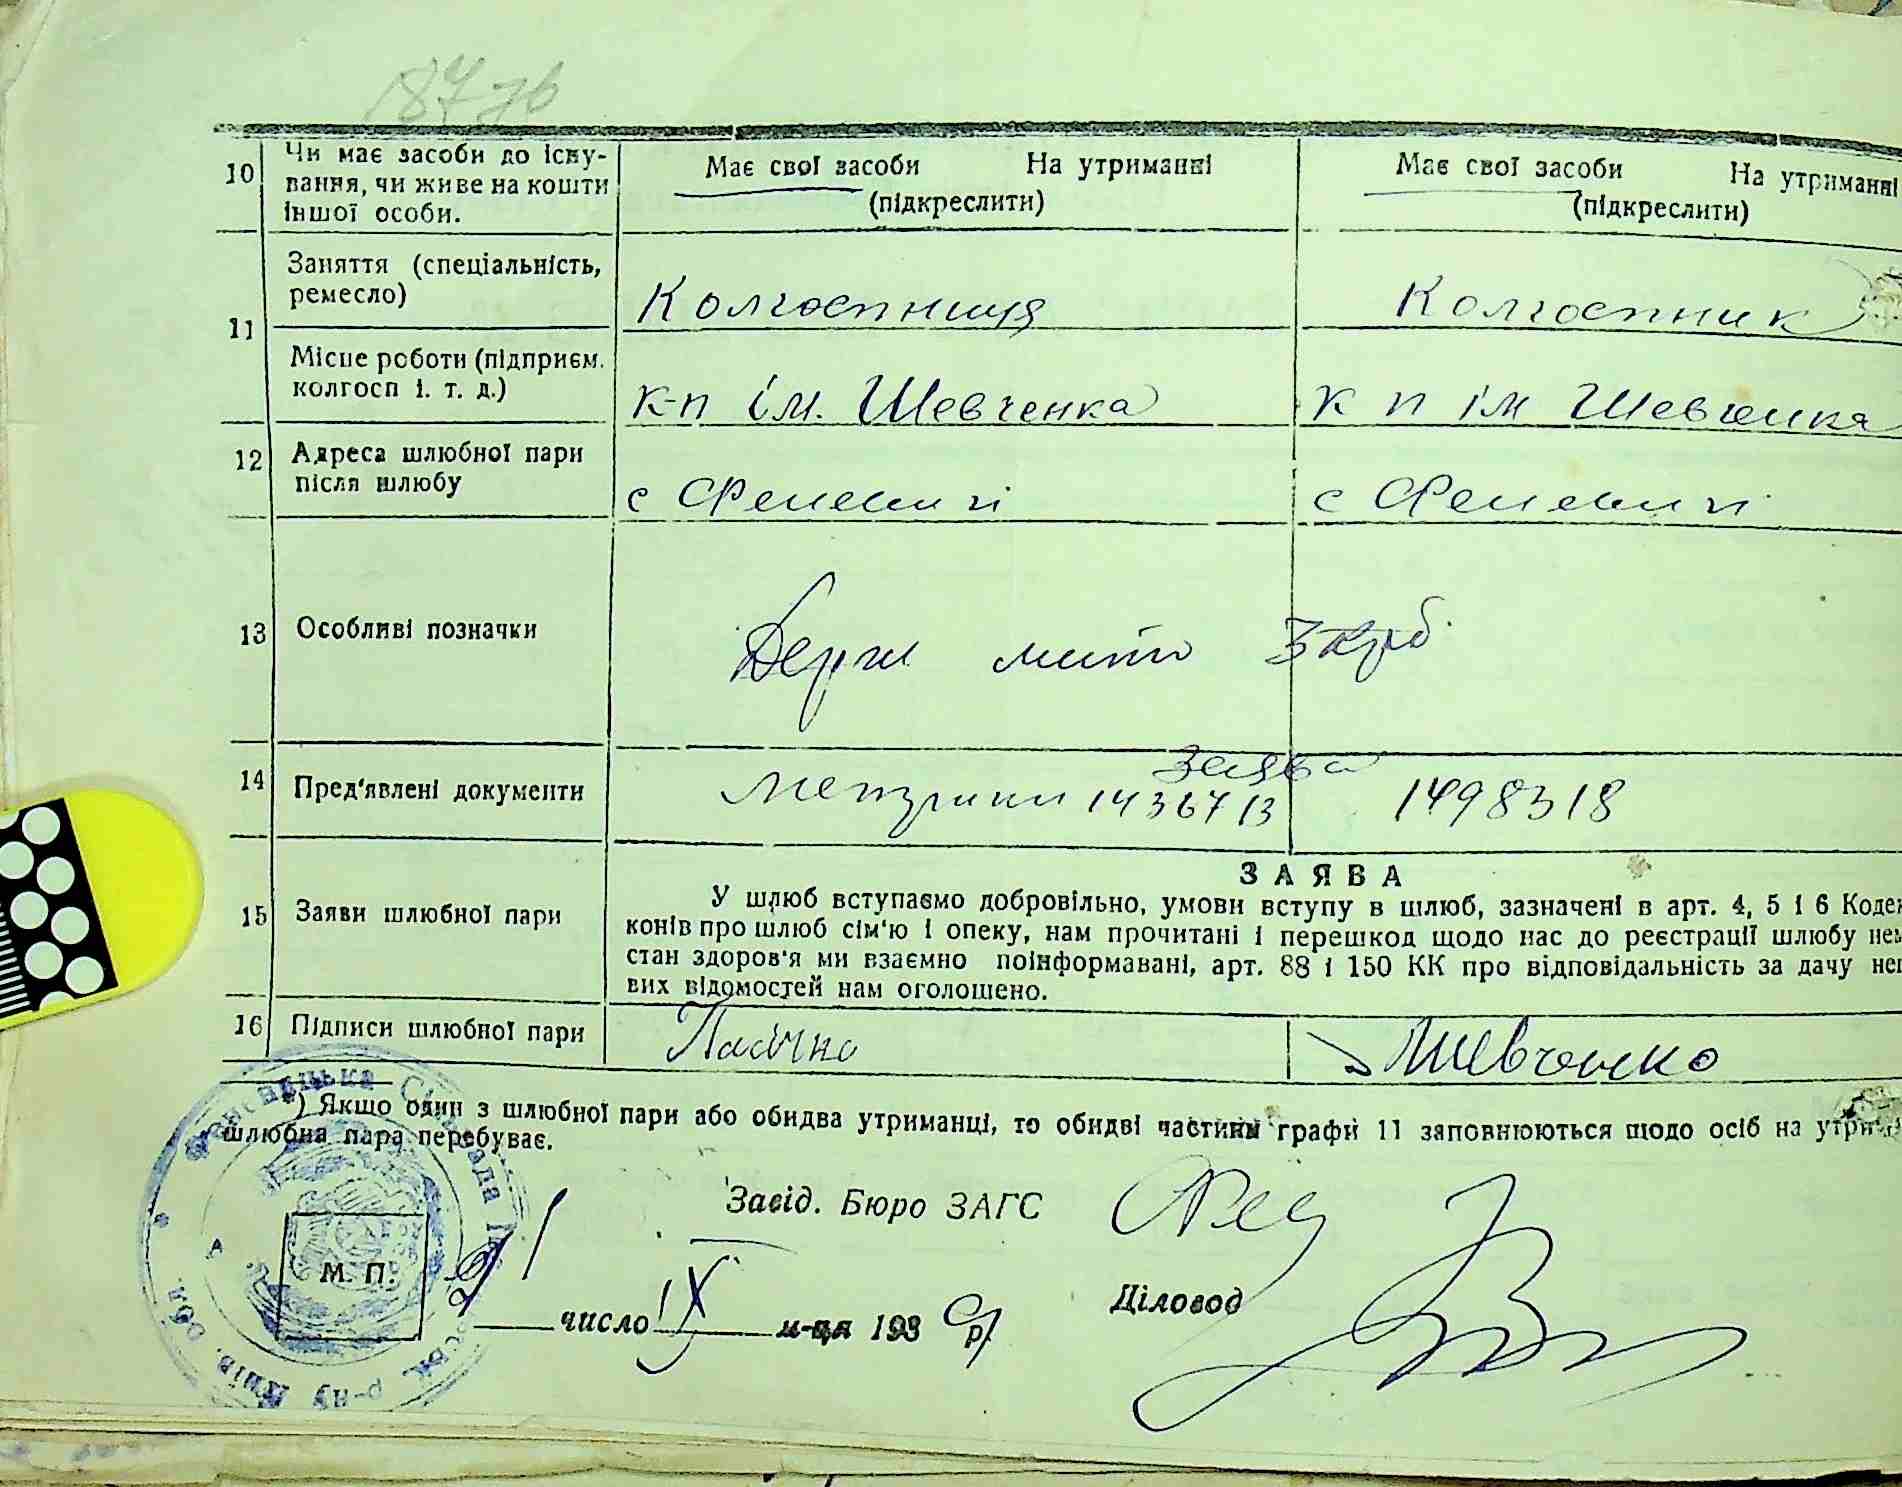 187 зв
10 Чи має засоби до існу-
вання, чи живе на кошти
іншої особи.
Має свої засоби На утриманні
(підкреслити)
Має свої засоби На утриманні
(підкреслити)
11 Заняття (спеціальність,
ремесло)
Колгоспниця
Колгоспник
Місце роботи (підприєм.
колгосп і. т. д.)
к-п ім. Шевченка
к п ім Шевченка
12 Адреса шлюбної пари
після шлюбу
с Феневичі
с Феневичі
13 Особливі позначки
Держ мито 3 крб.
14 Пред'явлені документи
Заява
Метрики 1436713
1498318
15 Заяви шлюбної пари
ЗАЯВА
У шлюб вступаємо добровільно, умови вступу в шлюб, зазначені в арт. 4, 5 і 6 Кодек
конів про шлюб сім'ю і опеку, нам прочитані і перешкод щодо нас до реєстрації шлюбу нем
стан здоров'я ми взаємно поінформавані, арт. 88 і 150 КК про відповідальність за дачу неп
вих відомостей нам оголошено.
16 Підписи шлюбної пари
Шевченко
) Якщо один з шлюбної пари або обидва утриманці, то обидві частини графи 11 заповнюються щодо осіб на утрим
шлюбна пара перебуває.
Завід. Бюро ЗАГС
М. П.
число IX м-ця 193 9 р.
Діловод
р-ну Київ. обл.